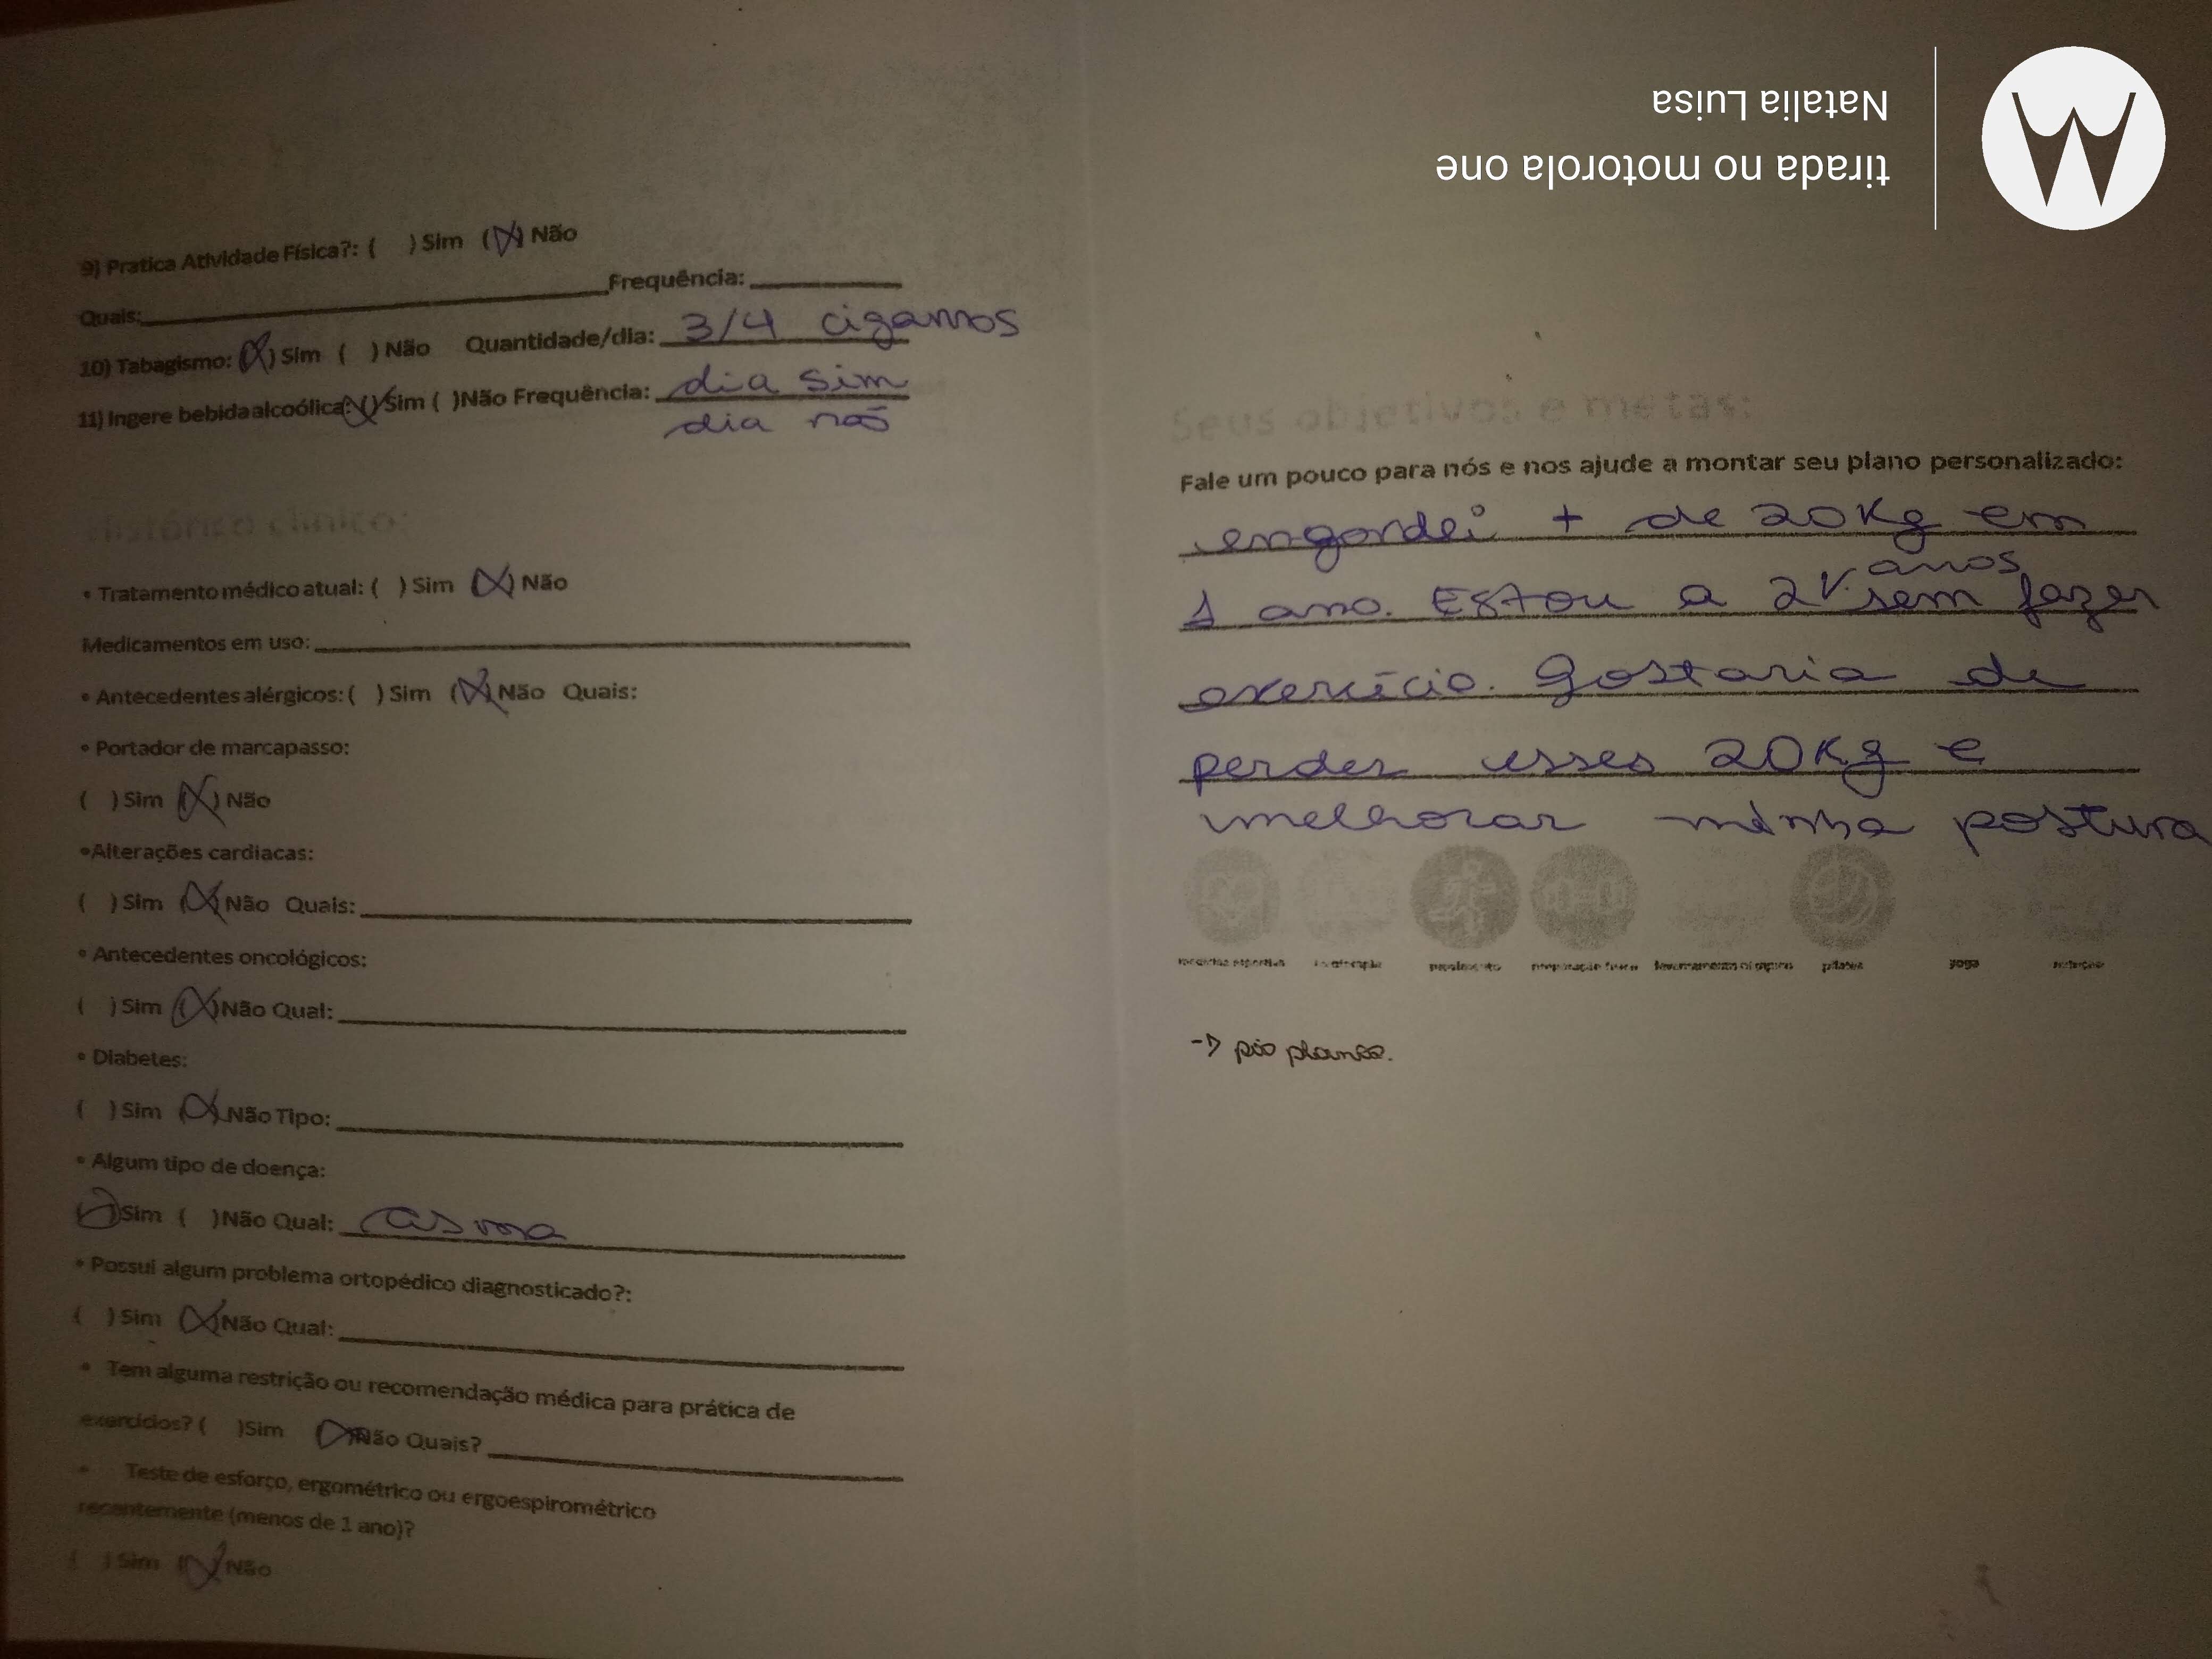 9) Pratica Atividade Física?: (   ) Sim (X) Não
Quais: ____________ Frequência: ______
10) Tabagismo: (X) Sim (   ) Não   Quantidade/dia: 3/4 cigarros
11) Ingere bebida alcoólica: (X) Sim (   ) Não Frequência: dia sim
dia não
Histórico clínico:
• Tratamento médico atual: (   ) Sim (X) Não
Medicamentos em uso: ____________
• Antecedentes alérgicos: (   ) Sim (X) Não   Quais:
• Portador de marcapasso:
(   ) Sim (X) Não
• Alterações cardíacas:
(   ) Sim (X) Não   Quais: ____________
• Antecedentes oncológicos:
(   ) Sim (X) Não Qual: ____________
• Diabetes:
(   ) Sim (X) Não Tipo: ____________
• Algum tipo de doença:
(X) Sim (   ) Não Qual: asma
• Possui algum problema ortopédico diagnosticado?:
(   ) Sim (X) Não Qual: ____________
• Tem alguma restrição ou recomendação médica para prática de
exercícios? (   ) Sim (X) Não Quais? ____________
• Teste de esforço, ergométrico ou ergoespirométrico
recentemente (menos de 1 ano)?
(   ) Sim (X) Não
Seus objetivos e metas:
Fale um pouco para nós e nos ajude a montar seu plano personalizado:
engordei + de 20kg em
1 ano. Estou a 2 anos sem fazer
exercício. gostaria de
perder esses 20kg e
melhorar minha postura
pilates
yoga
-> pé plano.
tirada no motorola one
Natalia Luisa